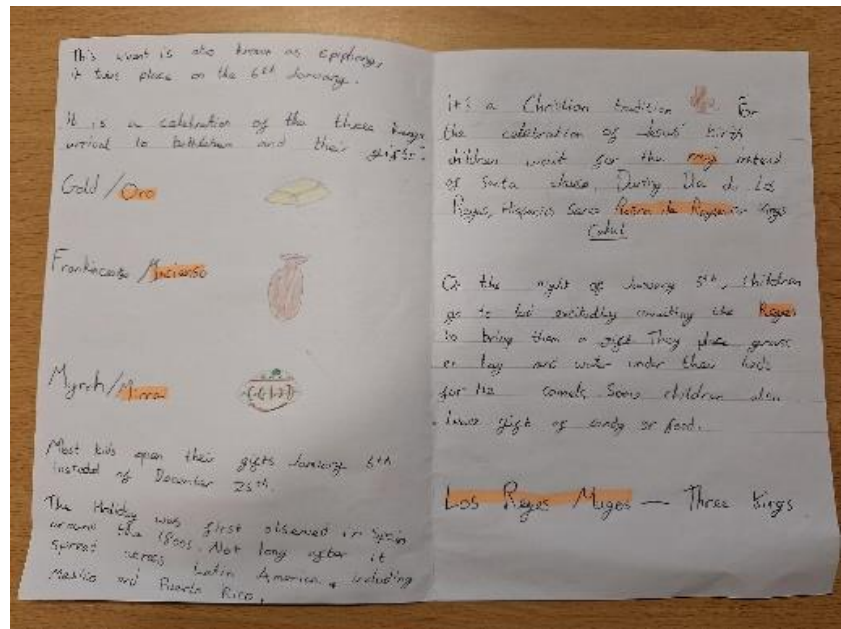 This event is also known as Epiphany,
it takes place on the 6th January.
It is a celebration of the three kings
arrival to bethlehem and their gifts:
Gold / Oro
Frankincense / Incienso
Myrrh / Mirra
Most kids open their gifts January 6th
instead of December 25th.
The Holiday was first observed in Spain
around the 1800s. Not long after it
spread across Latin America, including
Mexico and Puerto Rico.
It's a Christian tradition for
the celebration of Jesus' birth
children wait for the instead
of Santa clause, During Dia de Los
Reyes, Hispanics Rosca de Reyes or Kings
Cake!
On the night of January 5th, children
go to bed excitedly awaiting the Reyes
to bring them a gift They place grass
or hay and water under their beds
for the camels Some children also
leave gift of candy or food.
Los Reyes Magos — Three Kings